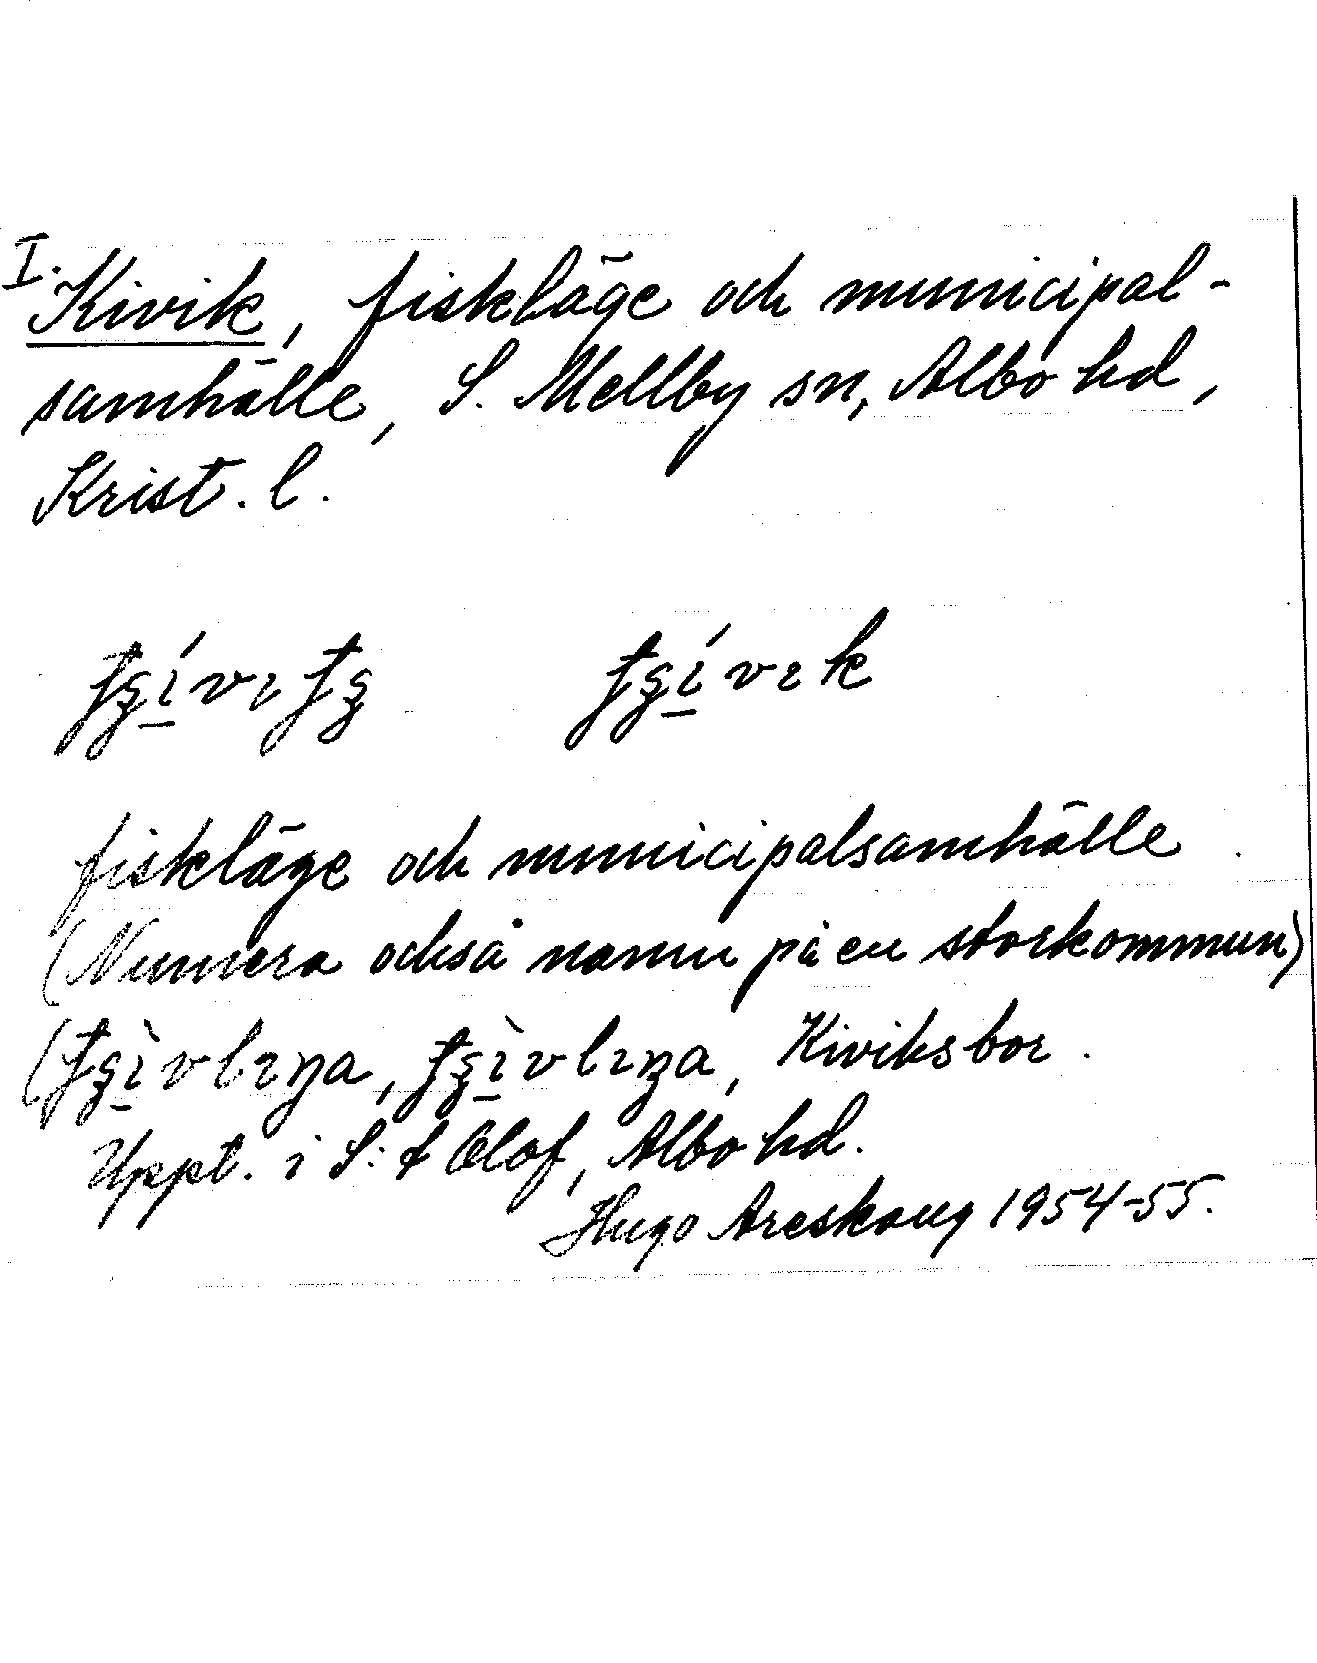 I. Kivik, fiskläge och municipal-
samhälle, S. Mellby sn, Albo hd,
Krist. l.
fiskläge och municipalsamhälle.
(Numera också namn på en storkommun)
Kiviksbor.
Uppt. i S:t Olof, Albo hd.
Hugo Areskoug 1954-55.